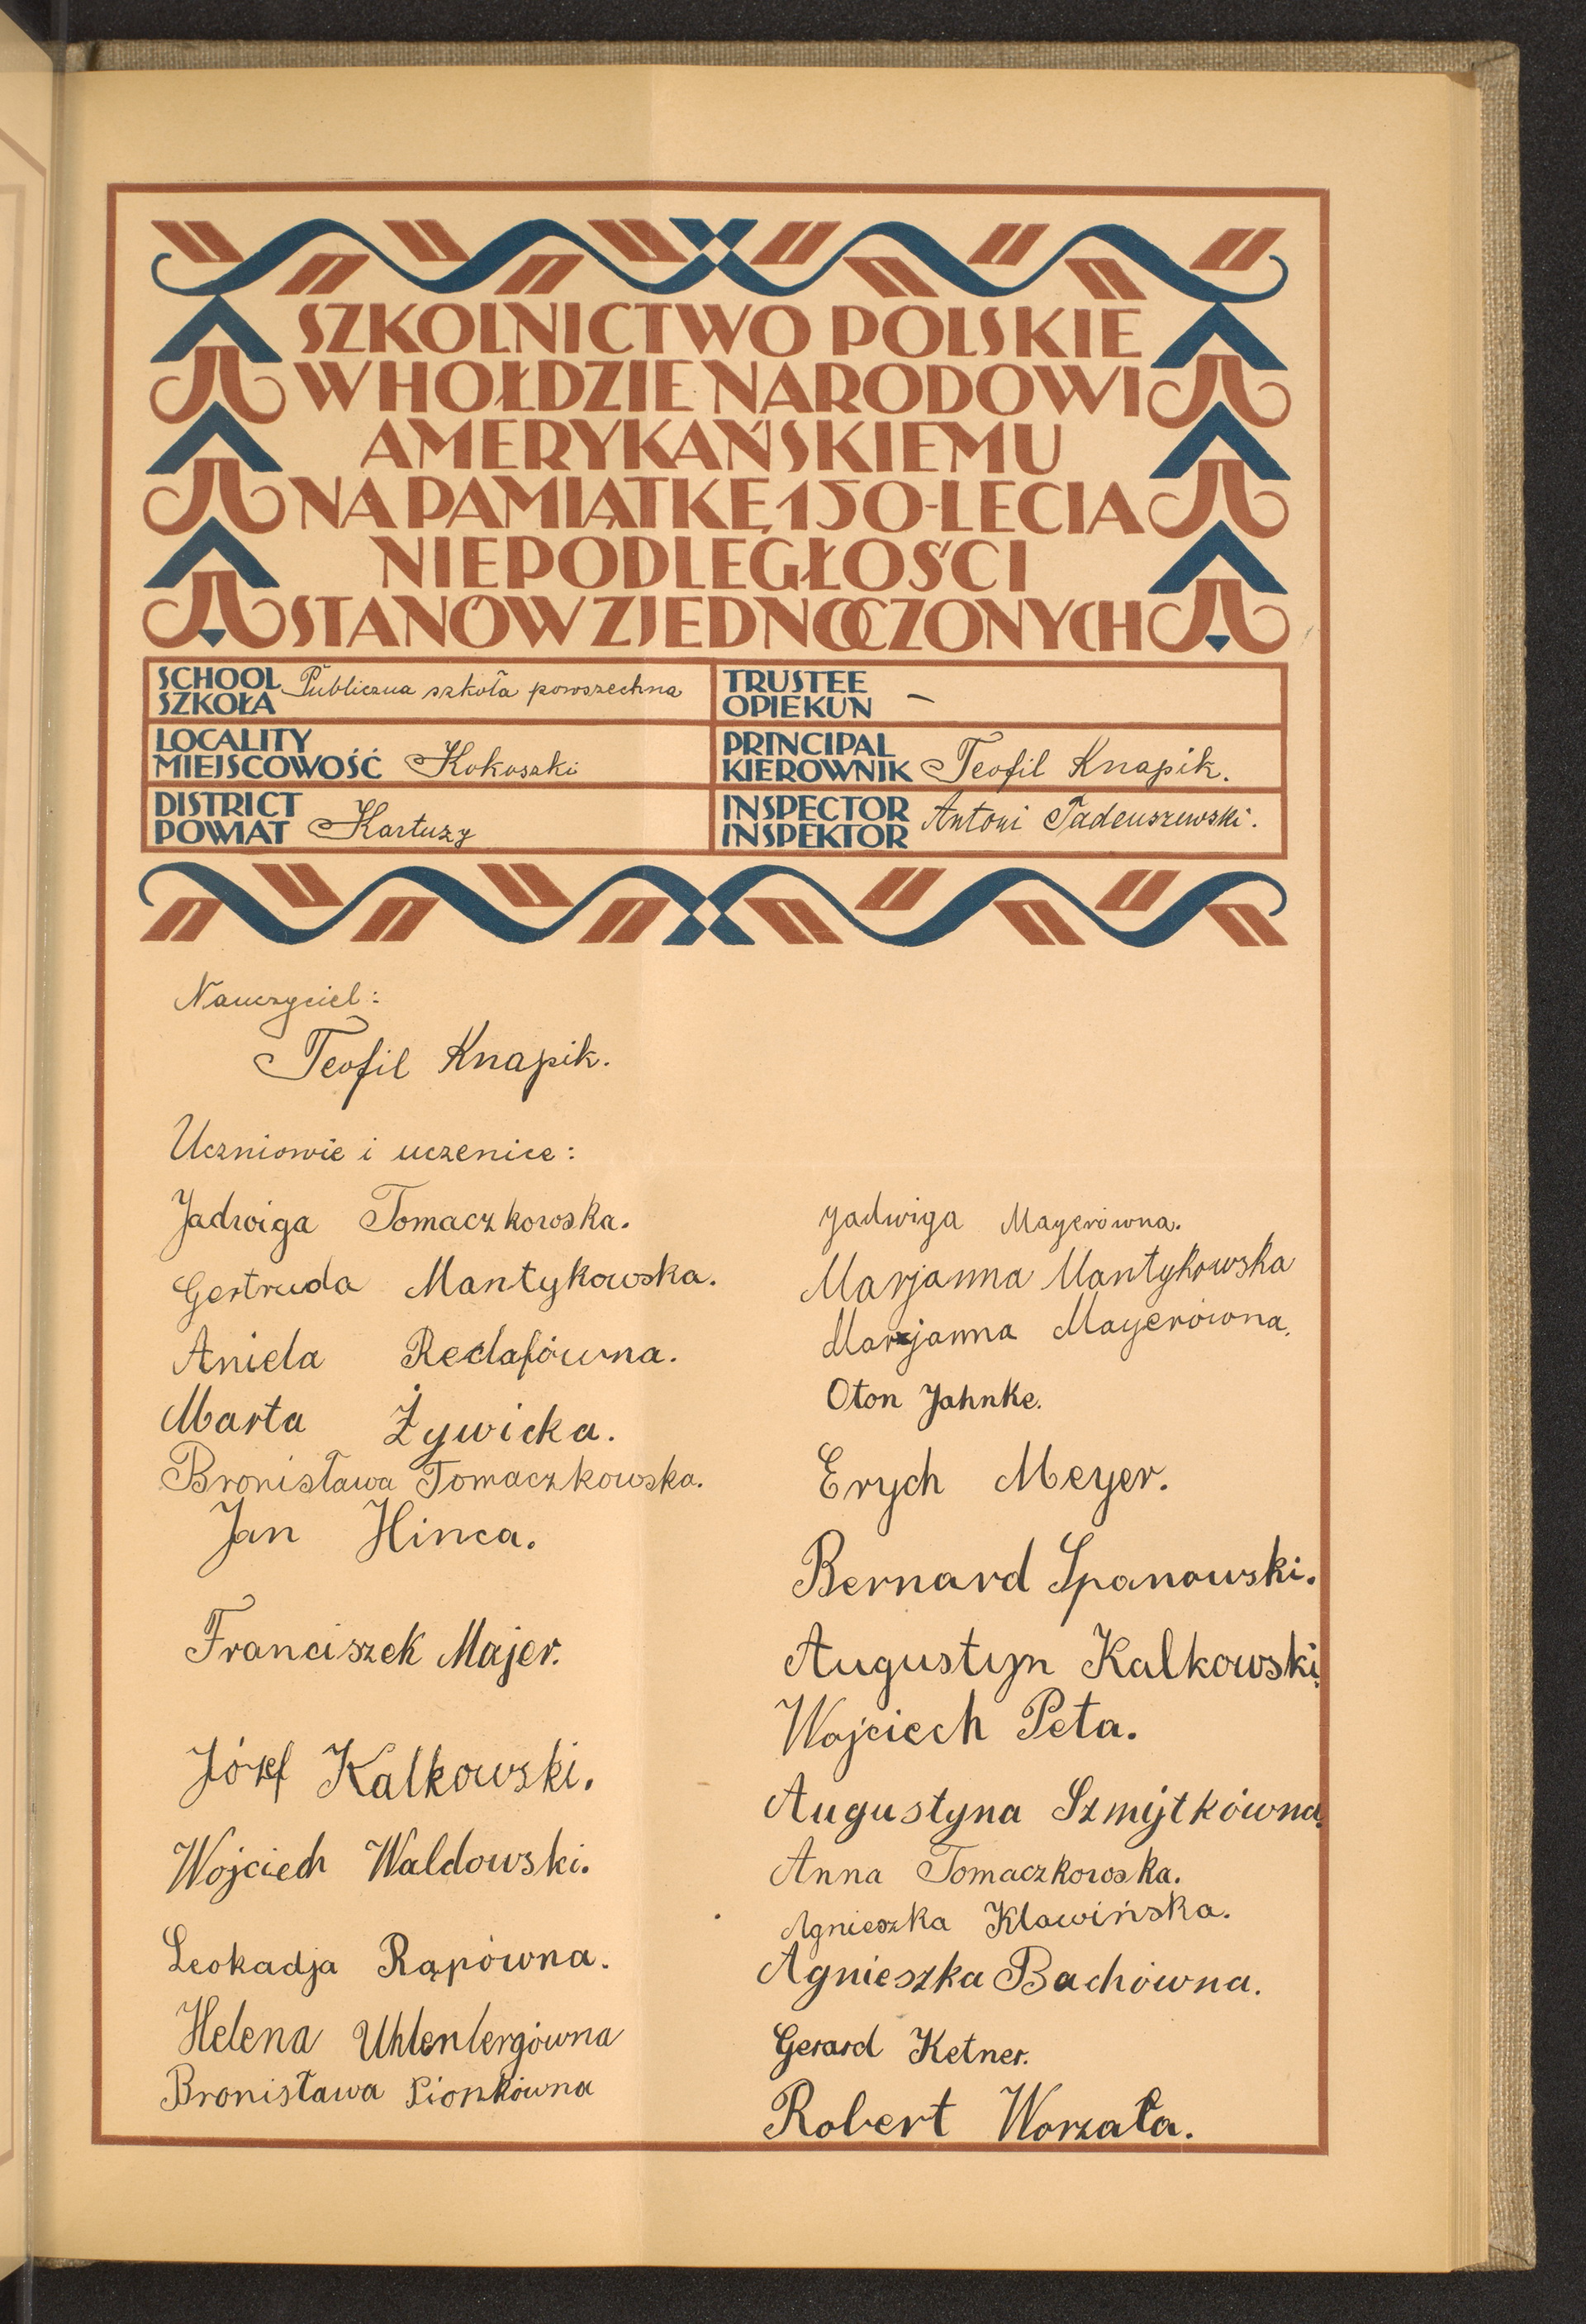 SZKOLNICTWO POLSKIE
W HOŁDZIE NARODOWI
AMERYKAŃSKIEMU
NA PAMIĄTKĘ 150-LECIA
NIEPODLEGŁOŚCI
STANÓW ZJEDNOCZONYCH
SCHOOL
SZKOŁA Publiczna szkoła powszechna
TRUSTEE
OPIEKUN –
LOCALITY
MIEJSCOWOŚĆ Kokoszki
PRINCIPAL
KIEROWNIK Teofil Knapik.
DISTRICT
POWIAT Kartuzy
INSPECTOR
INSPEKTOR Antoni Tadeuszewski.
Nauczyciel:
Teofil Knapik.
Uczniowie i uczenice:
Jadwiga Tomaczkowska.
Gertruda Mantykowska.
Aniela Redafówna.
Marta Żywicka.
Bronisława Tomaczkowska.
Jan Hinca.
Franciszek Majer.
Józef Kalkowski.
Wojciech Waldowski.
Leokadja Rąpówna.
Helena Uhlenbergówna
Bronisława Pionkówna
Jadwiga Mayerówna.
Marjanna Mantykowska
Marjanna Mayerówna.
Oton Jahnke.
Erych Meyer.
Bernard Spanowski.
Augustyn Kalkowski.
Wojciech Peta.
Augustyna Szmijtkówna.
Anna Tomaczkowska.
Agnieszka Klawińska.
Agnieszka Bachówna.
Gerard Ketner.
Robert Worzała.